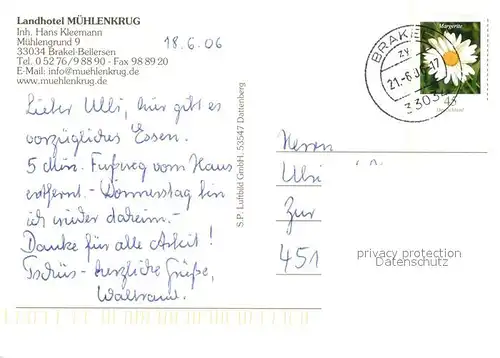 Landhotel MÜHLENKRUG
Inh. Hans Kleemann
Mühlengrund 9
33034 Brakel-Bellersen
Tel. 0 52 76/9 88 90 - Fax 98 89 20
E-Mail: info@muehlenkrug.de
www.muehlenkrug.de
18.6.06
Lieber Ulli, hier gibt es
vorzügliches Essen.
5 Min. Fußweg vom Haus
entfernt. - Donnerstag bin
ich wieder daheim. -
Danke für alle Arbeit!
Tschüs - herzliche Grüße,
Waltraud.
S.P. Luftbild GmbH, 53547 Dattenberg
Margerite
45
Deutschland
BRAKEL
21.-6.06-17
33034
Herrn
Ulli
Zur
451
privacy protection
Datenschutz